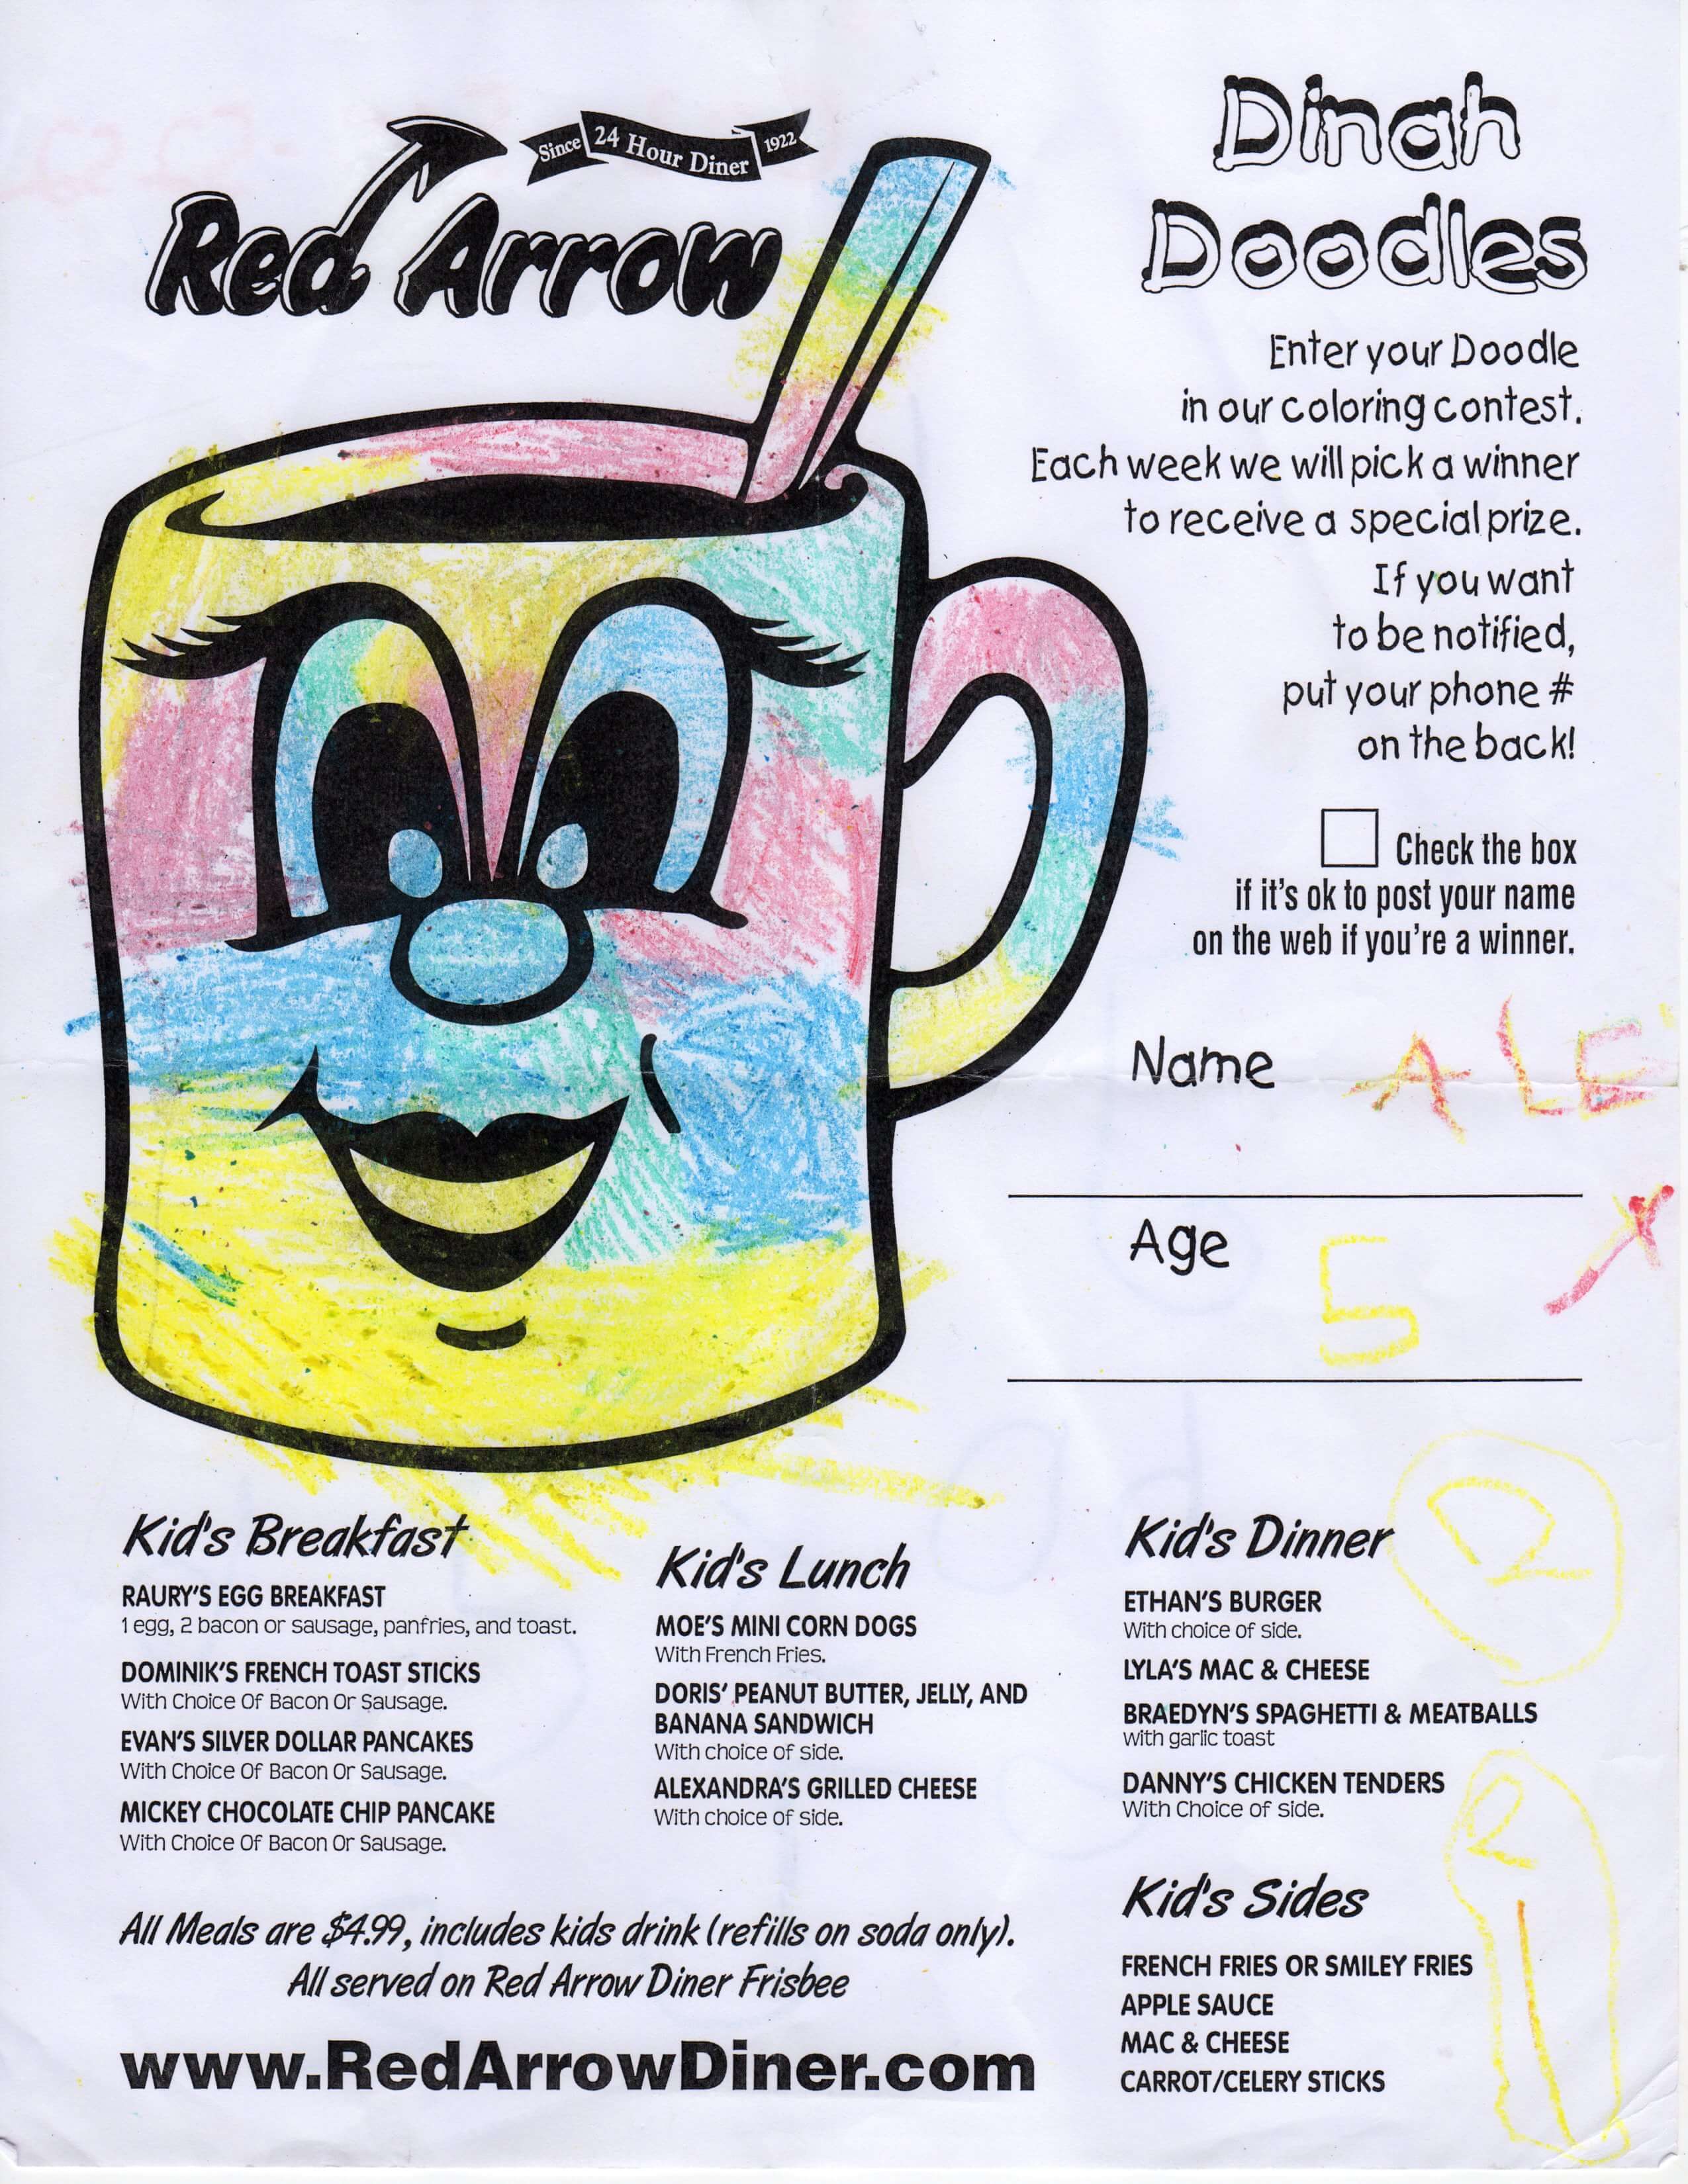 Since 24 Hour Diner 1922
Red Arrow
Dinah
Doodles
Enter your Doodle
in our coloring contest.
Each week we will pick a winner
to receive a special prize.
If you want
to be notified,
put your phone #
on the back!
Check the box
if it's ok to post your name
on the web if you're a winner.
Name ALE
X
Age 5
Kid's Breakfast
RAURY'S EGG BREAKFAST
1 egg, 2 bacon or sausage, panfries, and toast.
DOMINIK'S FRENCH TOAST STICKS
With Choice Of Bacon Or Sausage.
EVAN'S SILVER DOLLAR PANCAKES
With Choice Of Bacon Or Sausage.
MICKEY CHOCOLATE CHIP PANCAKE
With Choice Of Bacon Or Sausage.
Kid's Lunch
MOE'S MINI CORN DOGS
With French Fries.
DORIS' PEANUT BUTTER, JELLY, AND
BANANA SANDWICH
With choice of side.
ALEXANDRA'S GRILLED CHEESE
With choice of side.
Kid's Dinner
ETHAN'S BURGER
With choice of side.
LYLA'S MAC & CHEESE
BRAEDYN'S SPAGHETTI & MEATBALLS
with garlic toast
DANNY'S CHICKEN TENDERS
With Choice of side.
Kid's Sides
FRENCH FRIES OR SMILEY FRIES
APPLE SAUCE
MAC & CHEESE
CARROT/CELERY STICKS
2
2
1
All Meals are $4.99, includes kids drink (refills on soda only).
All served on Red Arrow Diner Frisbee
www.RedArrowDiner.com